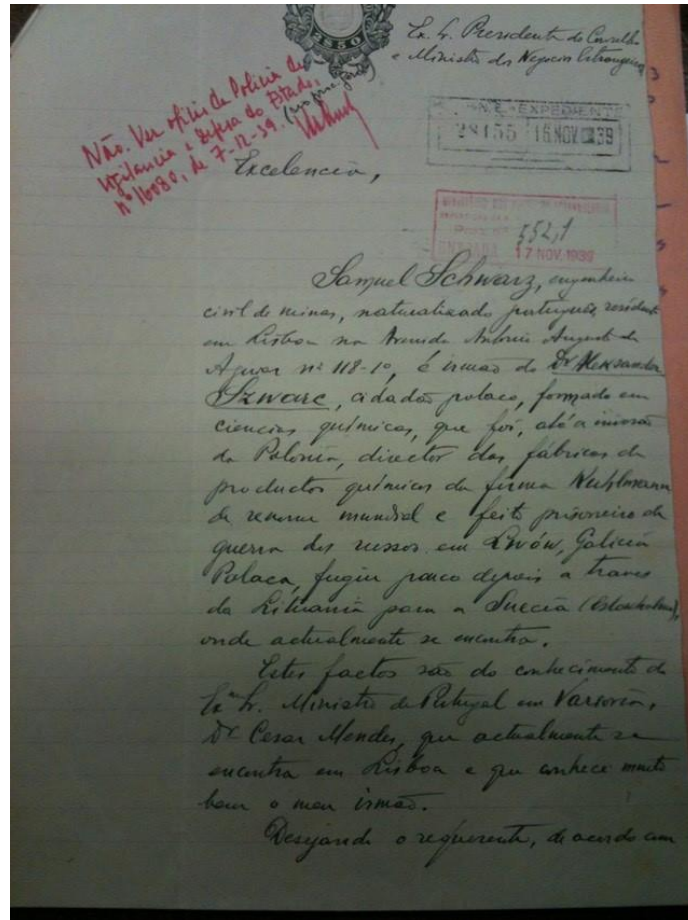 3$50
Ex. Sr. Presidente do Conselho
e Ministro dos Negocios Estrangeiros
Não. Ver ofício da Policia de
Vigilancia e Defesa do Estado,
nº 16080, de 7-12-39.
EXPEDIENTE
28155 16 NOV 39
Excelencia,
552,1
ENTRADA 17 NOV. 1939
Samuel Schwarz, engenheiro
civil de minas, naturalizado português, residente
em Lisboa na Avenida Antonio Augusto de
Aguiar nº 118-1º, é irmão do Dr Alexsander
Szwarc, cidadão polaco, formado em
ciencias químicas, que foi, até a invasão
da Polonia, director das fábricas de
productos químicos da firma Kuhlmann
de renome mundial e feito prisioneiro de
guerra dos russos em Lwów, Galicia
Polaca, fugiu pouco depois a traves
da Lituania para a Suecia (Estockolmo),
onde actualmente se encontra.
Estes factos são do conhecimento do
Exº Sr. Ministro de Portugal em Varsovia,
Dr Cesar Mendes, que actualmente se
encontra em Lisboa e que conhece muito
bem o meu irmão.
Desejando o requerente, de acordo com